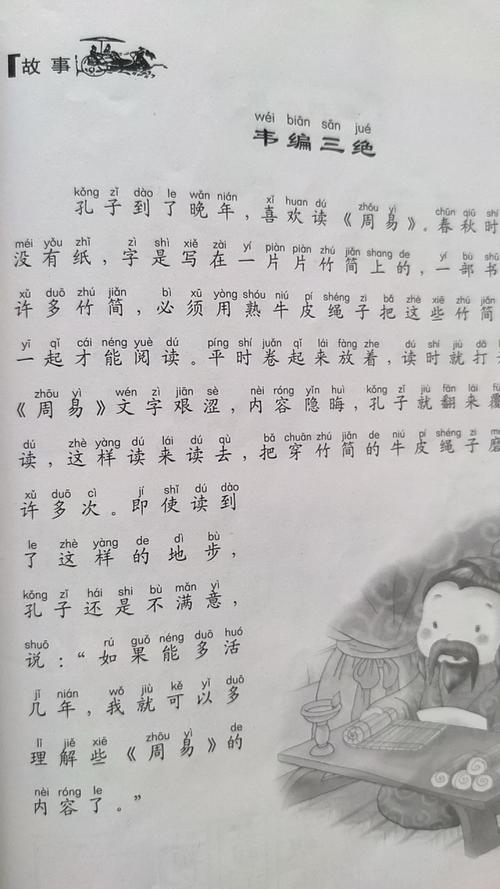 故事
wéi biān sān jué
韦编三绝
kǒng zǐ dào le wǎn nián xǐ huan dú zhōu yì chūn qiū shí
孔子到了晚年，喜欢读《周易》。春秋时
méi yǒu zhǐ zì shì xiě zài yí piàn piàn zhú jiǎn shang de yí bù shū
没有纸，字是写在一片片竹简上的，一部书
xǔ duō zhú jiǎn bì xū yòng shóu niú pí shéng zi bǎ zhè xiē zhú jiǎn
许多竹简，必须用熟牛皮绳子把这些竹简
yì qǐ cái néng yuè dú píng shí juǎn qǐ lái fàng zhe dú shí jiù dǎ
一起才能阅读。平时卷起来放着，读时就打
zhōu yì wén zì jiān sè nèi róng yǐn huì kǒng zǐ jiù fān lái fù
《周易》文字艰涩，内容隐晦，孔子就翻来覆
dú zhè yàng dú lái dú qù bǎ chuān zhú jiǎn de niú pí shéng zi mó
读，这样读来读去，把穿竹简的牛皮绳子磨
xǔ duō cì jí shǐ dú dào
许多次。即使读到
le zhè yàng de dì bù
了这样的地步，
kǒng zǐ hái shi bù mǎn yì
孔子还是不满意，
shuō rú guǒ néng duō huó
说：“如果能多活
jǐ nián wǒ jiù kě yǐ duō
几年，我就可以多
lǐ jiě xiē zhōu yì de
理解些《周易》的
nèi róng le
内容了。”